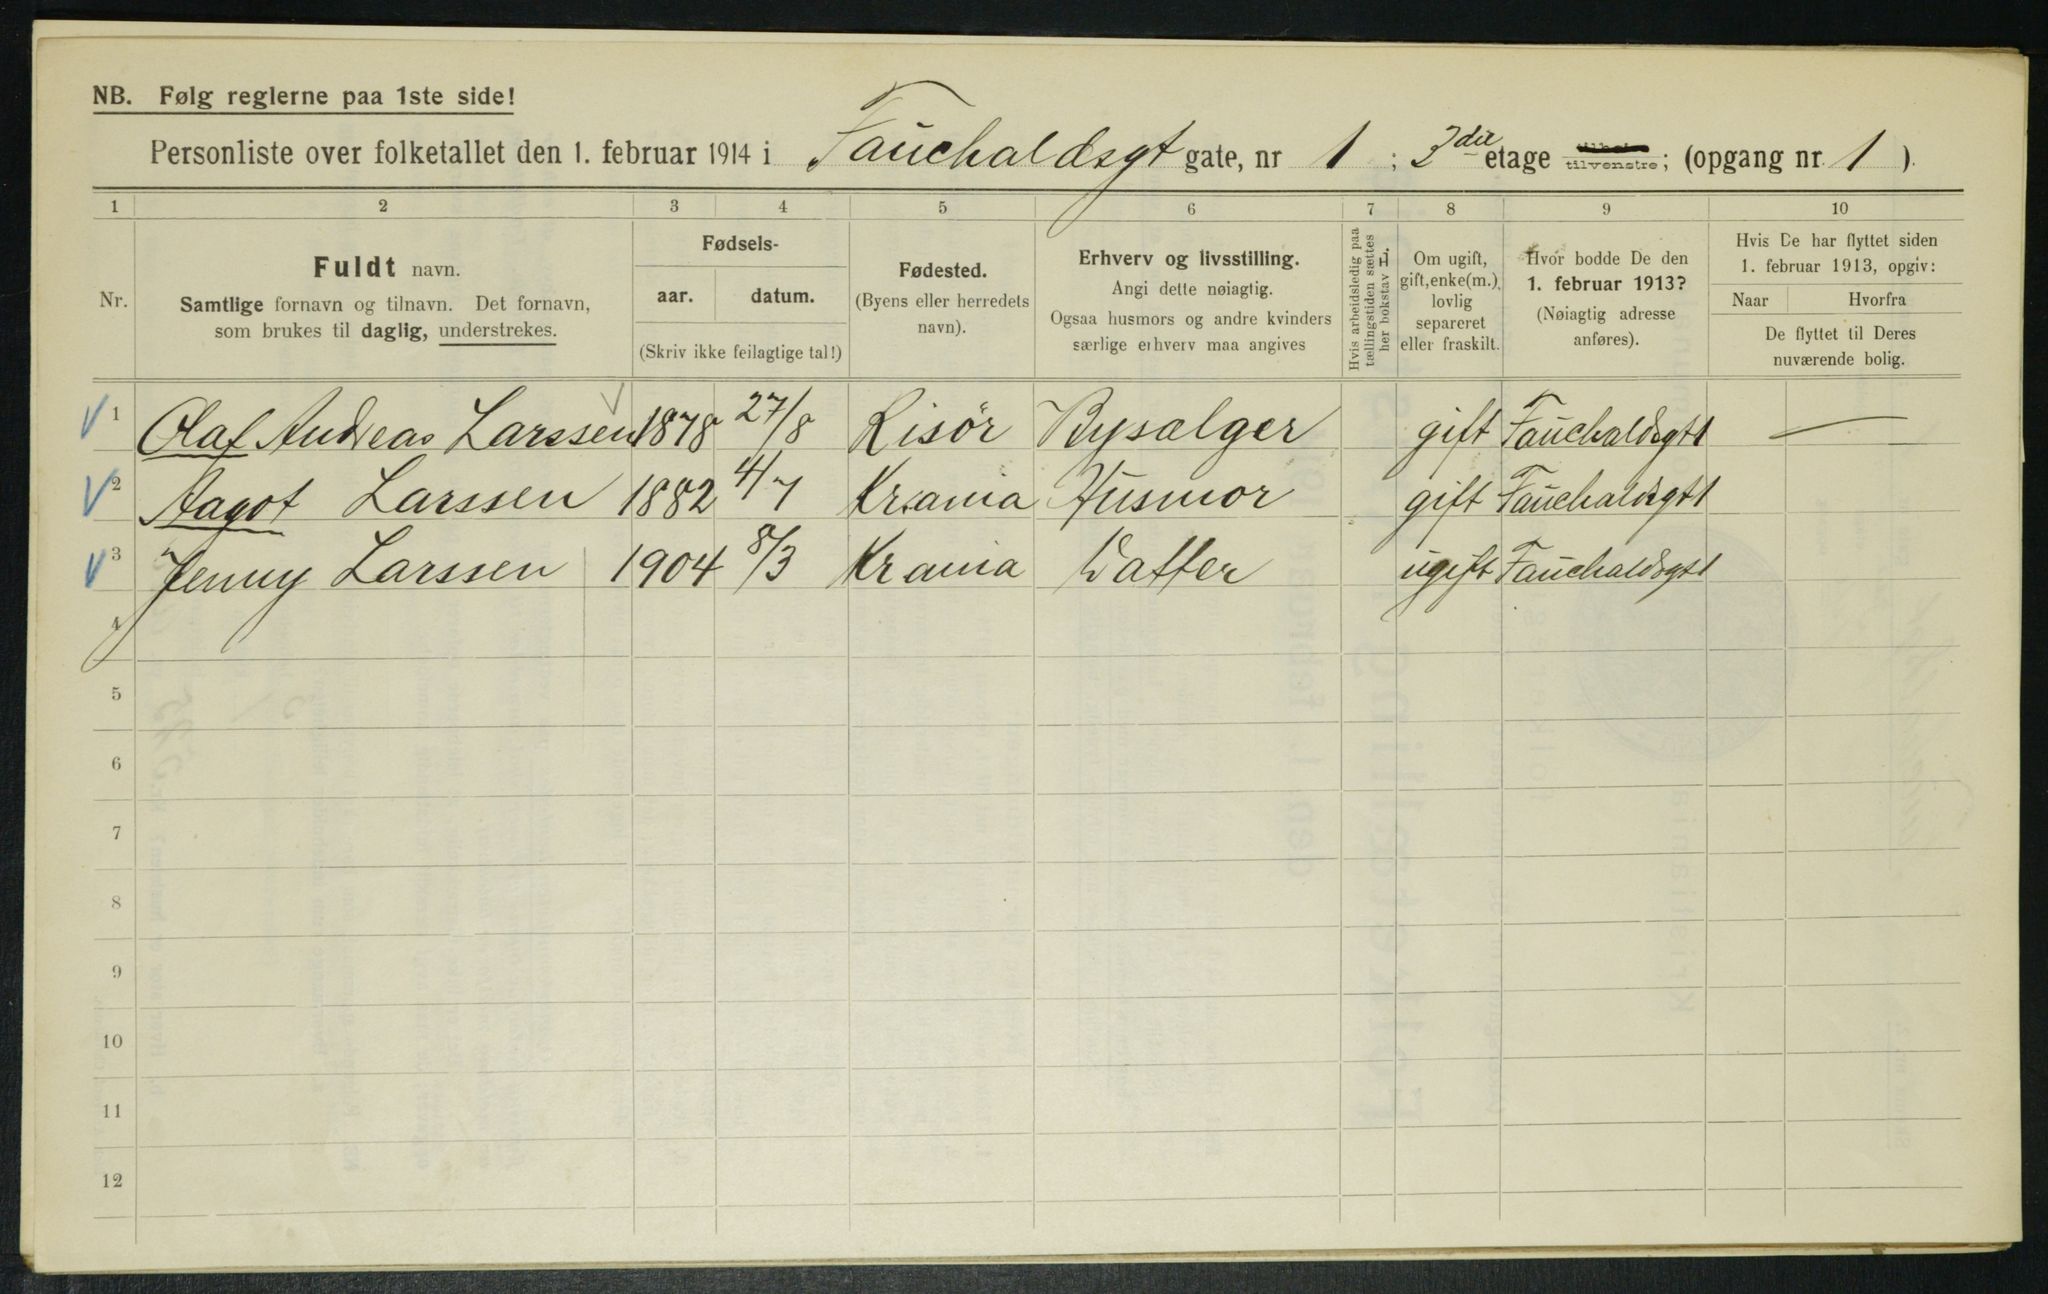 NB. Følg reglerne paa 1ste side!
Personliste over folketallet den 1. februar 1914 i Fauchaldsgt gate, nr 1 ; 3die etage tilvenstre; (opgang nr 1 ).
1 2 3 4 5 6 7 8 9 10
Nr.
Fuldt navn.
Samtlige fornavn og tilnavn. Det fornavn,
som brukes til daglig, understrekes.
Fødsels-
aar. datum.
(Skriv ikke feilagtige tal!)
Fødested.
(Byens eller herredets
navn).
Erhverv og livsstilling.
Angi dette nøiagtig.
Ogsaa husmors og andre kvinders
særlige erhverv maa angives
Hvis arbeidsledig paa
tællingstiden sættes
her bokstav L.
Om ugift,
gift, enke(m.),
lovlig
separeret
eller fraskilt.
Hvor bodde De den
1. februar 1913?
(Nøiagtig adresse
anføres).
Hvis De har flyttet siden
1. februar 1913, opgiv:
Naar Hvorfra
De flyttet til Deres
nuværende bolig.
1 Olaf Andreas Larssen 1878 27/8 Risör Bysælger gift Fauchaldsgt 1 —
2 Aagot Larssen 1882 4/7 Kr.ania Husmor gift Fauchaldsgt 1
3 Jenny Larssen 1904 8/3 Krania Datter ugift Fauchaldsgt 1
4
5
6
7
8
9
10
11
12